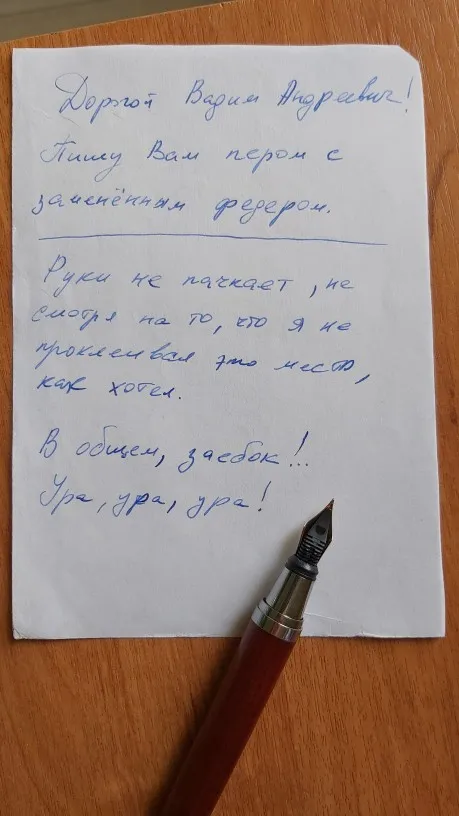 Дорогой Вадим Андреевич!
Пишу Вам пером с
заменённым федером.
Руки не пачкает, не
смотря на то, что я не
проклеивал это место,
как хотел.
В общем, заебок!..
Ура, ура, ура!